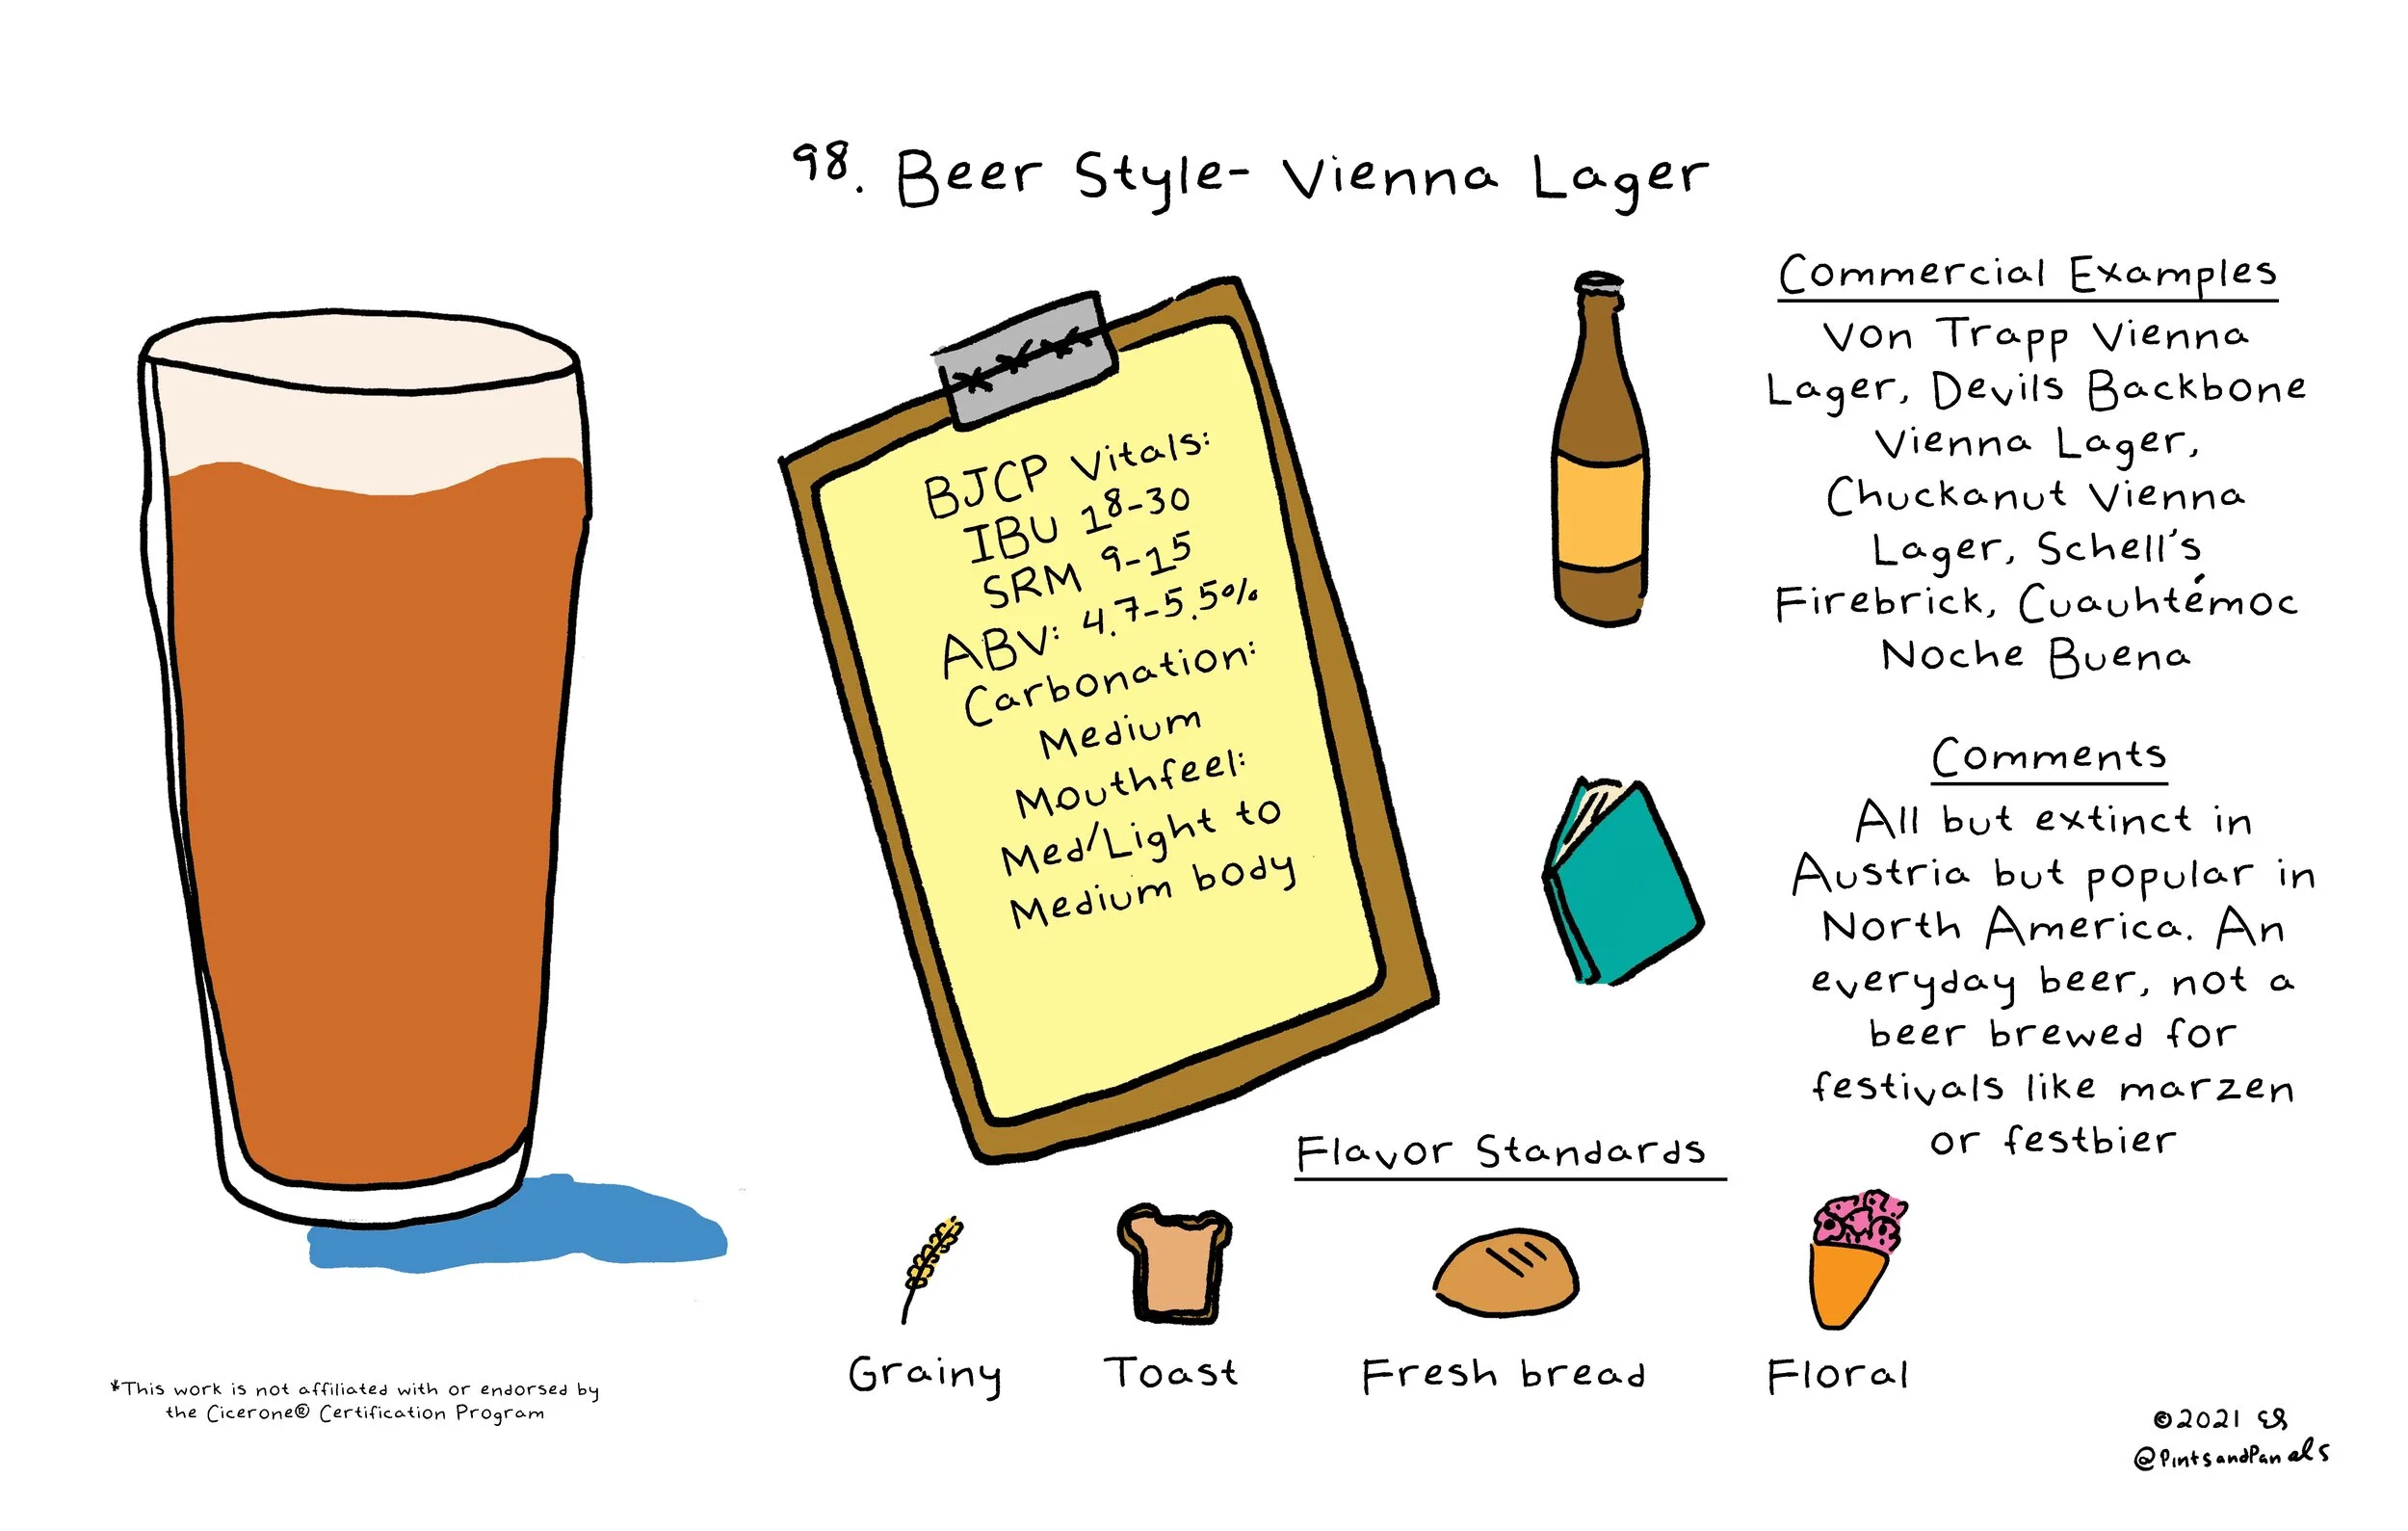 98. Beer Style- Vienna Lager
BJCP Vitals:
IBU 18-30
SRM 9-15
ABV: 4.7-5.5%
Carbonation:
Medium
Mouthfeel:
Med/Light to
Medium body
Commercial Examples
Von Trapp Vienna
Lager, Devils Backbone
Vienna Lager,
Chuckanut Vienna
Lager, Schell's
Firebrick, Cuauhtémoc
Noche Buena
Comments
All but extinct in
Austria but popular in
North America. An
everyday beer, not a
beer brewed for
festivals like marzen
or festbier
Flavor Standards
Grainy
Toast
Fresh bread
Floral
*This work is not affiliated with or endorsed by
the Cicerone® Certification Program
©2021 ES
@PintsandPanels